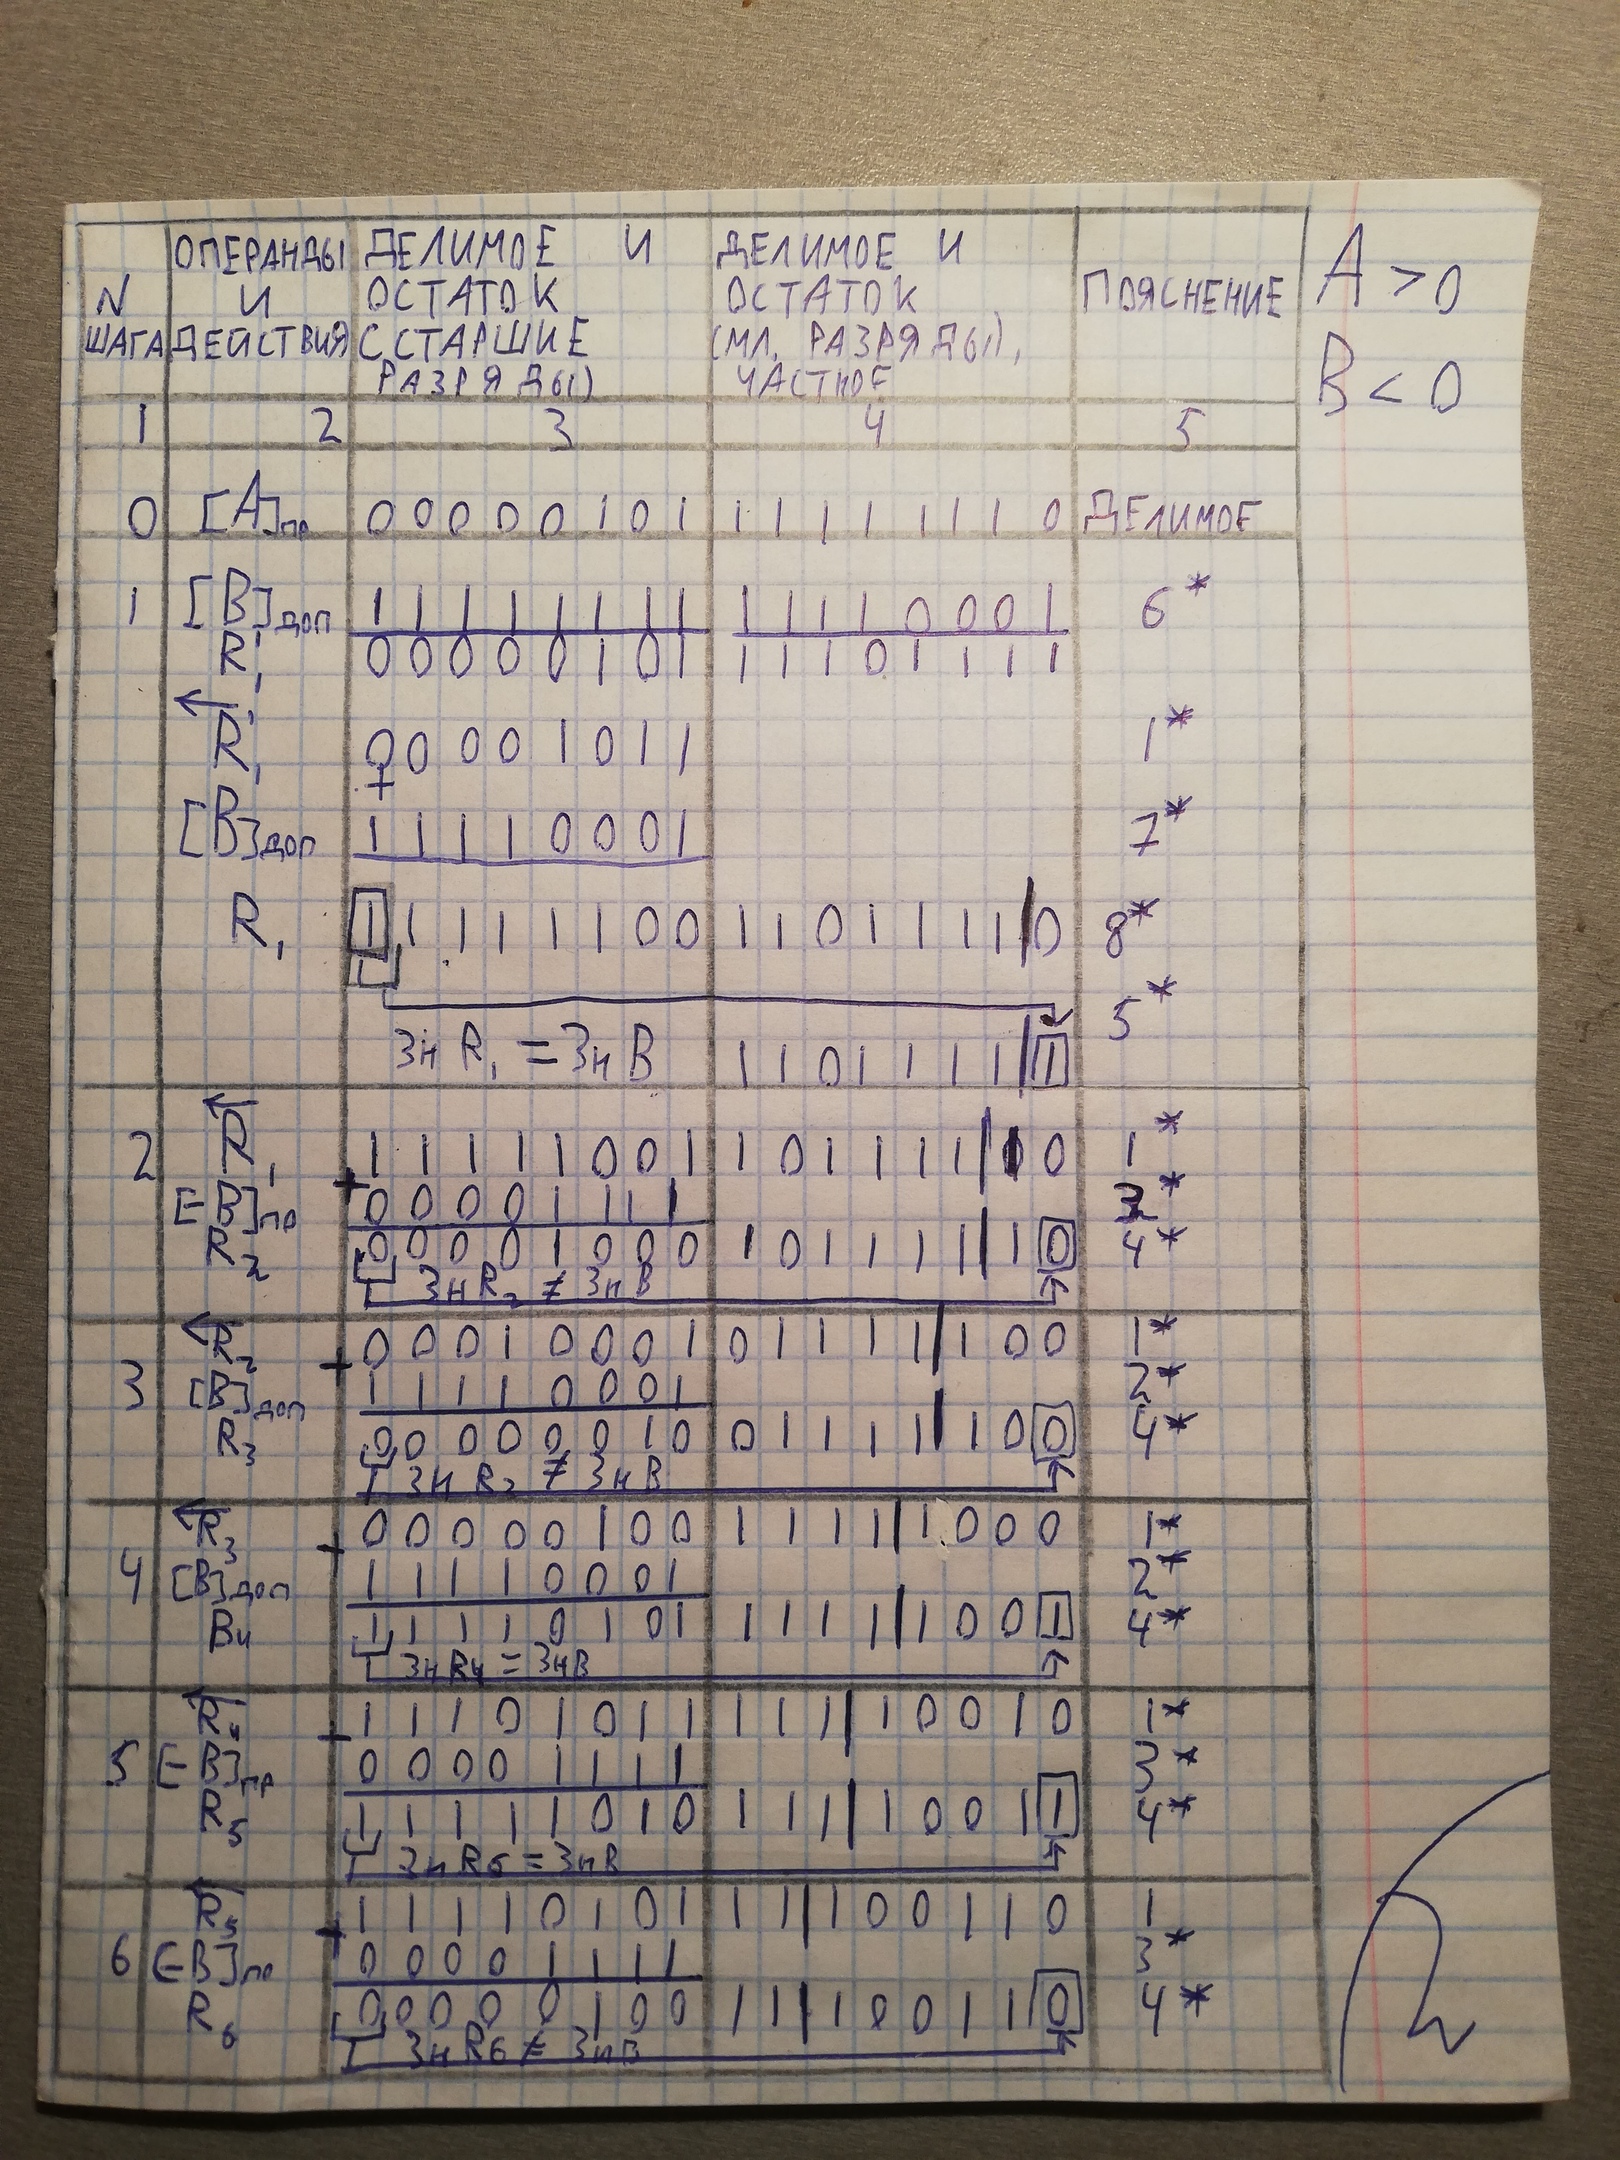 N ШАГА | ОПЕРАНДЫ И ДЕЙСТВИЯ | ДЕЛИМОЕ И ОСТАТОК (СТАРШИЕ РАЗРЯДЫ) | ДЕЛИМОЕ И ОСТАТОК (МЛ. РАЗРЯДЫ), ЧАСТНОЕ | ПОЯСНЕНИЕ
A > 0
B < 0
1 2 3 4 5
0 [A]пр 0 0 0 0 0 1 0 1 1 1 1 1 1 1 1 0 ДЕЛИМОЕ
1 [B]доп 1 1 1 1 1 1 1 1 1 1 1 1 0 0 0 1 6*
R'1 0 0 0 0 0 1 0 1 1 1 1 0 1 1 1 1
←R'1 0 0 0 0 1 0 1 1 1*
+
[B]доп 1 1 1 1 0 0 0 1 7*
R1 1 1 1 1 1 1 0 0 1 1 0 1 1 1 1 | 0 8*
5*
Зн R1 = Зн B 1 1 0 1 1 1 1 | 1
2 ←R1 1 1 1 1 1 0 0 1 1 0 1 1 1 1 | 1 0 1*
+ [-B]пр 0 0 0 0 1 1 1 1 3*
R2 0 0 0 0 1 0 0 0 1 0 1 1 1 1 | 1 0 4*
Зн R2 ≠ Зн B
←R2 0 0 0 1 0 0 0 1 0 1 1 1 1 | 1 0 0 1*
3 + [B]доп 1 1 1 1 0 0 0 1 2*
R3 0 0 0 0 0 0 1 0 0 1 1 1 1 | 1 0 0 4*
Зн R3 ≠ Зн B
←R3 0 0 0 0 0 1 0 0 1 1 1 1 | 1 0 0 0 1*
4 + [B]доп 1 1 1 1 0 0 0 1 2*
B4 1 1 1 1 0 1 0 1 1 1 1 1 | 1 0 0 1 4*
Зн R4 = Зн B
←R4 1 1 1 0 1 0 1 1 1 1 1 | 1 0 0 1 0 1*
5 + [-B]пр 0 0 0 0 1 1 1 1 3*
R5 1 1 1 1 1 0 1 0 1 1 1 | 1 0 0 1 1 4*
Зн R5 = Зн B
←R5 1 1 1 1 0 1 0 1 1 1 | 1 0 0 1 1 0 1
6 + [-B]пр 0 0 0 0 1 1 1 1 3*
R6 0 0 0 0 0 1 0 0 1 1 | 1 0 0 1 1 0 4*
Зн R6 ≠ Зн B